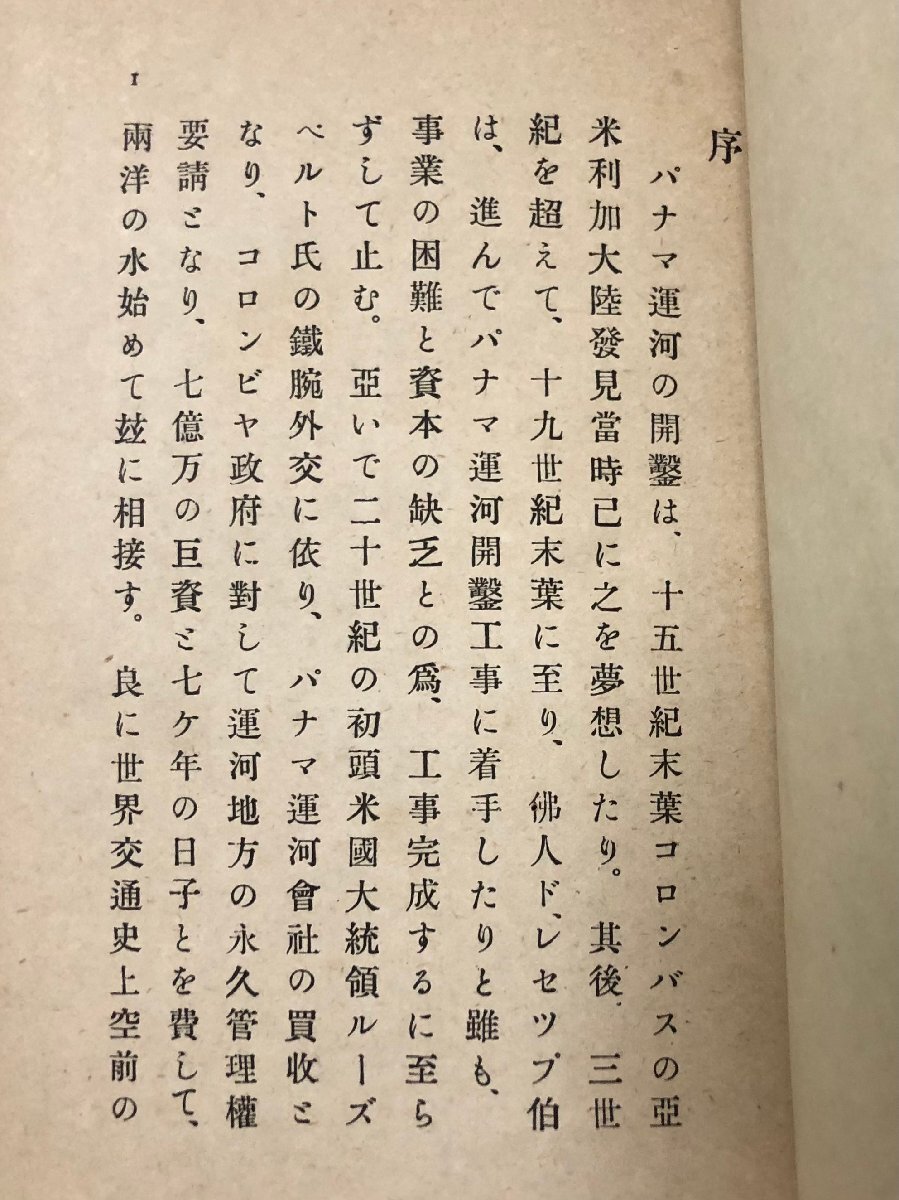 序
パナマ運河の開鑿は、十五世紀末葉コロンバスの亞
米利加大陸發見當時已に之を夢想したり。其後、三世
紀を超えて、十九世紀末葉に至り、佛人ド、レセツプ伯
は、進んでパナマ運河開鑿工事に着手したりと雖も、
事業の困難と資本の缺乏との爲、工事完成するに至ら
ずして止む。亞いで二十世紀の初頭米國大統領ルーズ
ベルト氏の鐵腕外交に依り、パナマ運河會社の買收と
なり、コロンビヤ政府に對して運河地方の永久管理權
要請となり、七億万の巨資と七ケ年の日子とを費して、
兩洋の水始めて玆に相接す。良に世界交通史上空前の
1